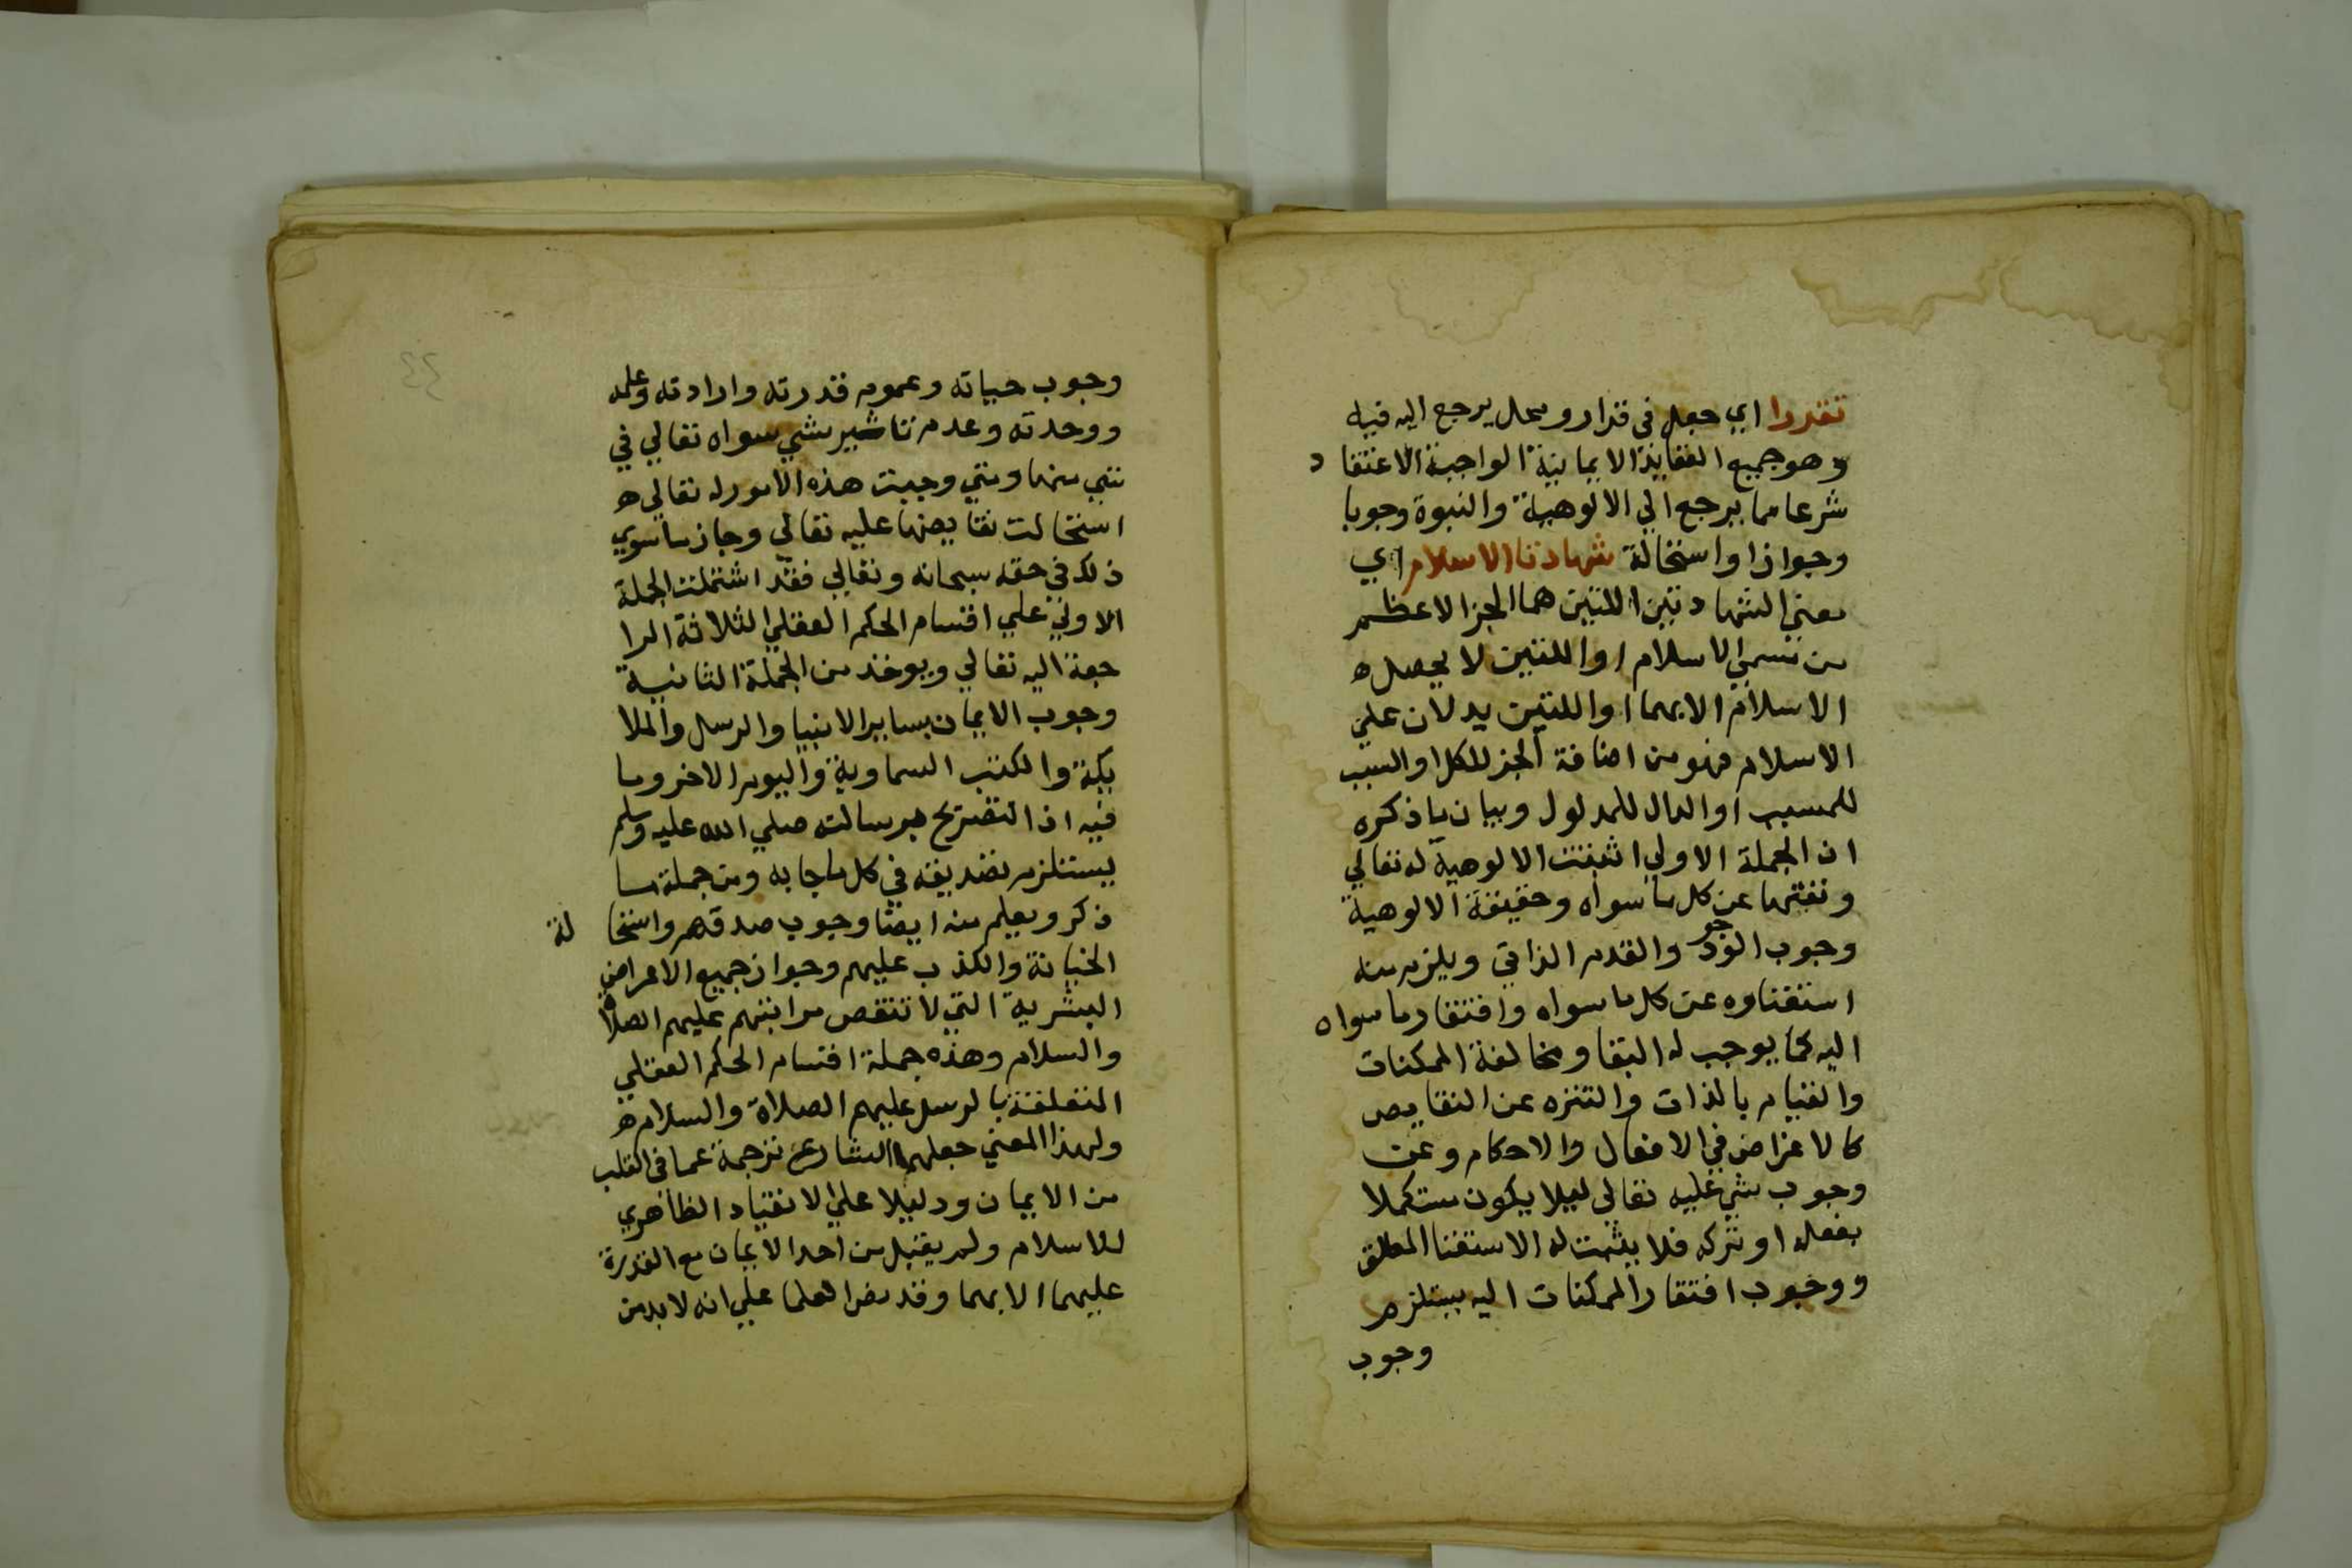 تقررا اي جعل في قرار ومحل يرجع اليه فيه
وهو جميع العقايد الايمانية الواجبة الاعتقاد
شرعا مما يرجع الي الالوهية والنبوة وجوبا
وجوازا واستحالة شهادتا الاسلام اي
معني الشهادتين اللتين هما الجز الاعظم
من مسمي الاسلام او اللتين لا يحصل
الاسلام الا بهما او اللتين يدلان علي
الاسلام فهو من اضافة الجز للكل او السبب
للمسبب او الدال للمدلول وبيان ما ذكره
ان الجملة الاولي اثبتت الالوهية له تعالي
ونفتها عن كل ما سواه وحقيقة الالوهية
وجوب الوجود والقدم الذاتي ويلزم منه
استغناوه عن كل ما سواه وافتقار ما سواه
اليه كما يوجب له البقا ومخالفة الممكنات
والقيام بالذات والتنزه عن النقايص
كالاغراض في الافعال والاحكام وعن
وجوب شي عليه تعالي ليلا يكون مستكملا
بفعله او تركه فلا يثبت له الاستغنا المطلق
ووجوب افتقار الممكنات اليه يستلزم
وجوب
٤٤
وجوب حياته وعموم قدرته وارادته وعلمه
ووحدته وعدم تاثير شي سواه تعالي في
شي منها ومتي وجبت هذه الامور له تعالي
استحالت نقايضها عليه تعالي وجاز ما سوي
ذلك في حقه سبحانه وتعالي فقد اشتملت الجملة
الاولي علي اقسام الحكم العقلي الثلاثة الرا
جعة اليه تعالي ويوخذ من الجملة الثانية
وجوب الايمان بساير الانبيا والرسل والملا
يكة والكتب السماوية واليوم الاخر وما
فيه اذ التصريح برسالته صلي الله عليه وسلم
يستلزم تصديقه في كل ما جا به ومن جملته ما
ذكر ويعلم منه ايضا وجوب صدقهم واستحالة
الخيانة والكذب عليهم وجواز جميع الاعراض
البشرية التي لا تنقص مراتبهم عليهم الصلاة
والسلام وهذه جملة اقسام الحكم العقلي
المتعلقة بالرسل عليهم الصلاة والسلام
ولهذا المعني جعلهما الشارع ترجمة عما في القلب
من الايمان ودليلا علي الانقياد الظاهري
للاسلام ولم يقبل من احد الايمان مع القدرة
عليهما الا بهما وقد نص العلما علي انه لا بد من